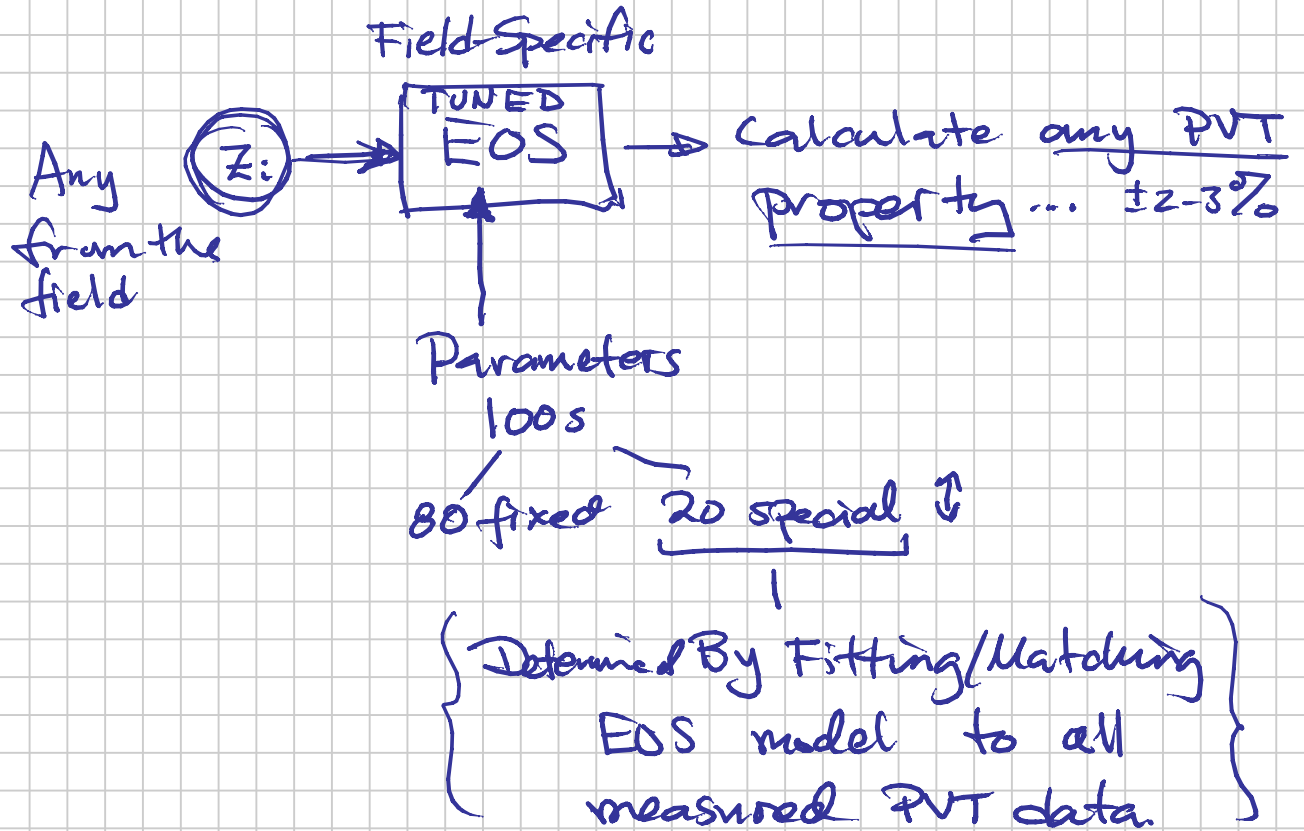 Field-Specific
TUNED
EOS
Any
Zi
from the
field
Calculate any PVT
property... ±2-3%
Parameters
100s
80 fixed 20 special ↕
Determined By Fitting/Matching
EOS model to all
measured PVT data.